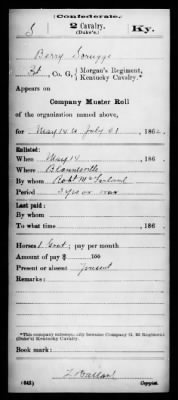 (Confederate.)
S 2 Cavalry. Ky.
(Duke's).
Berry Scruggs
Pt, Co. G, Morgan's Regiment,
Kentucky Cavalry.*
Appears on
Company Muster Roll
of the organization named above,
for May 14 to July 31, 1862.
Enlisted:
When May 14, 186
Where Blountsville
By whom Robt McFarland
Period 3 yrs or war
Last paid:
By whom
To what time , 186 .
Horses 1 Govt; per month
Amount of pay $ 100
Present or absent Present
Remarks:
Book mark:
(642) Copyist.